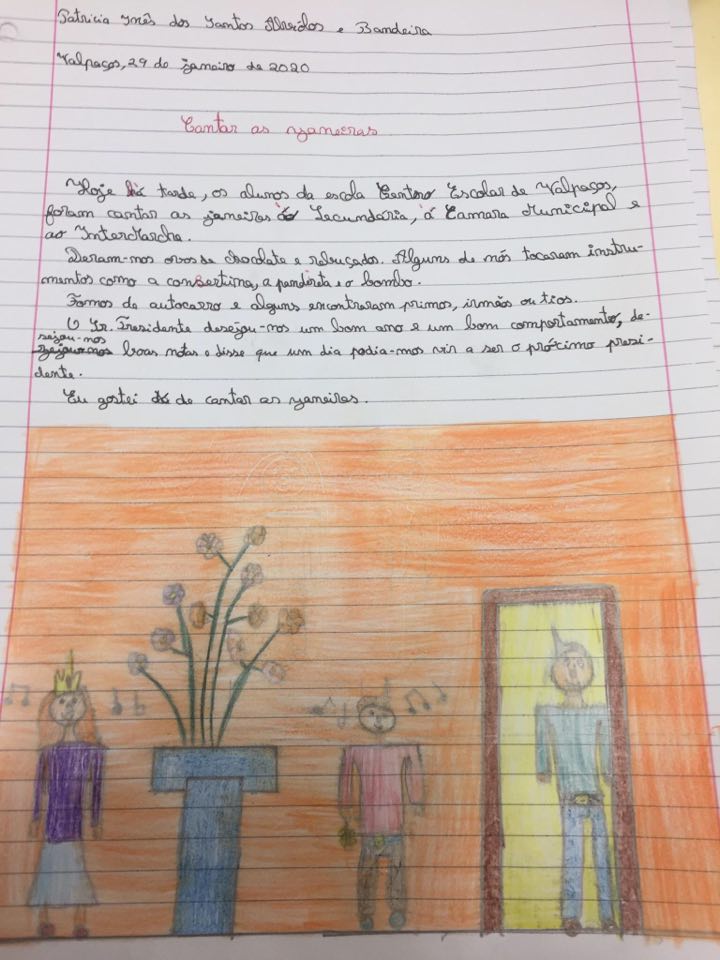 Patricia Inês dos Santos e Bandeira
Valpaços, 29 de janeiro de 2020
Cantar as Janeiras
Hoje há tarde, os alunos da escola Centro Escolar de Valpaços,
foram cantar as janeiras à Secundária, à Camara Municipal e
ao InterMarche.
Deram-nos ovos de chocolate e rebuçados. Alguns de nós tocaram instru-
mentos como a consertina, a pandireta e o bombo.
Fomos de autocarro e alguns encontraram primos, irmãos ou tios.
O Sr. Presidente desejou-nos um bom ano e um bom comportamento, de-
sejou-nos
boas notas e disse que um dia podia-mos vir a ser o próximo presi-
dente.
Eu gostei de cantar as janeiras.